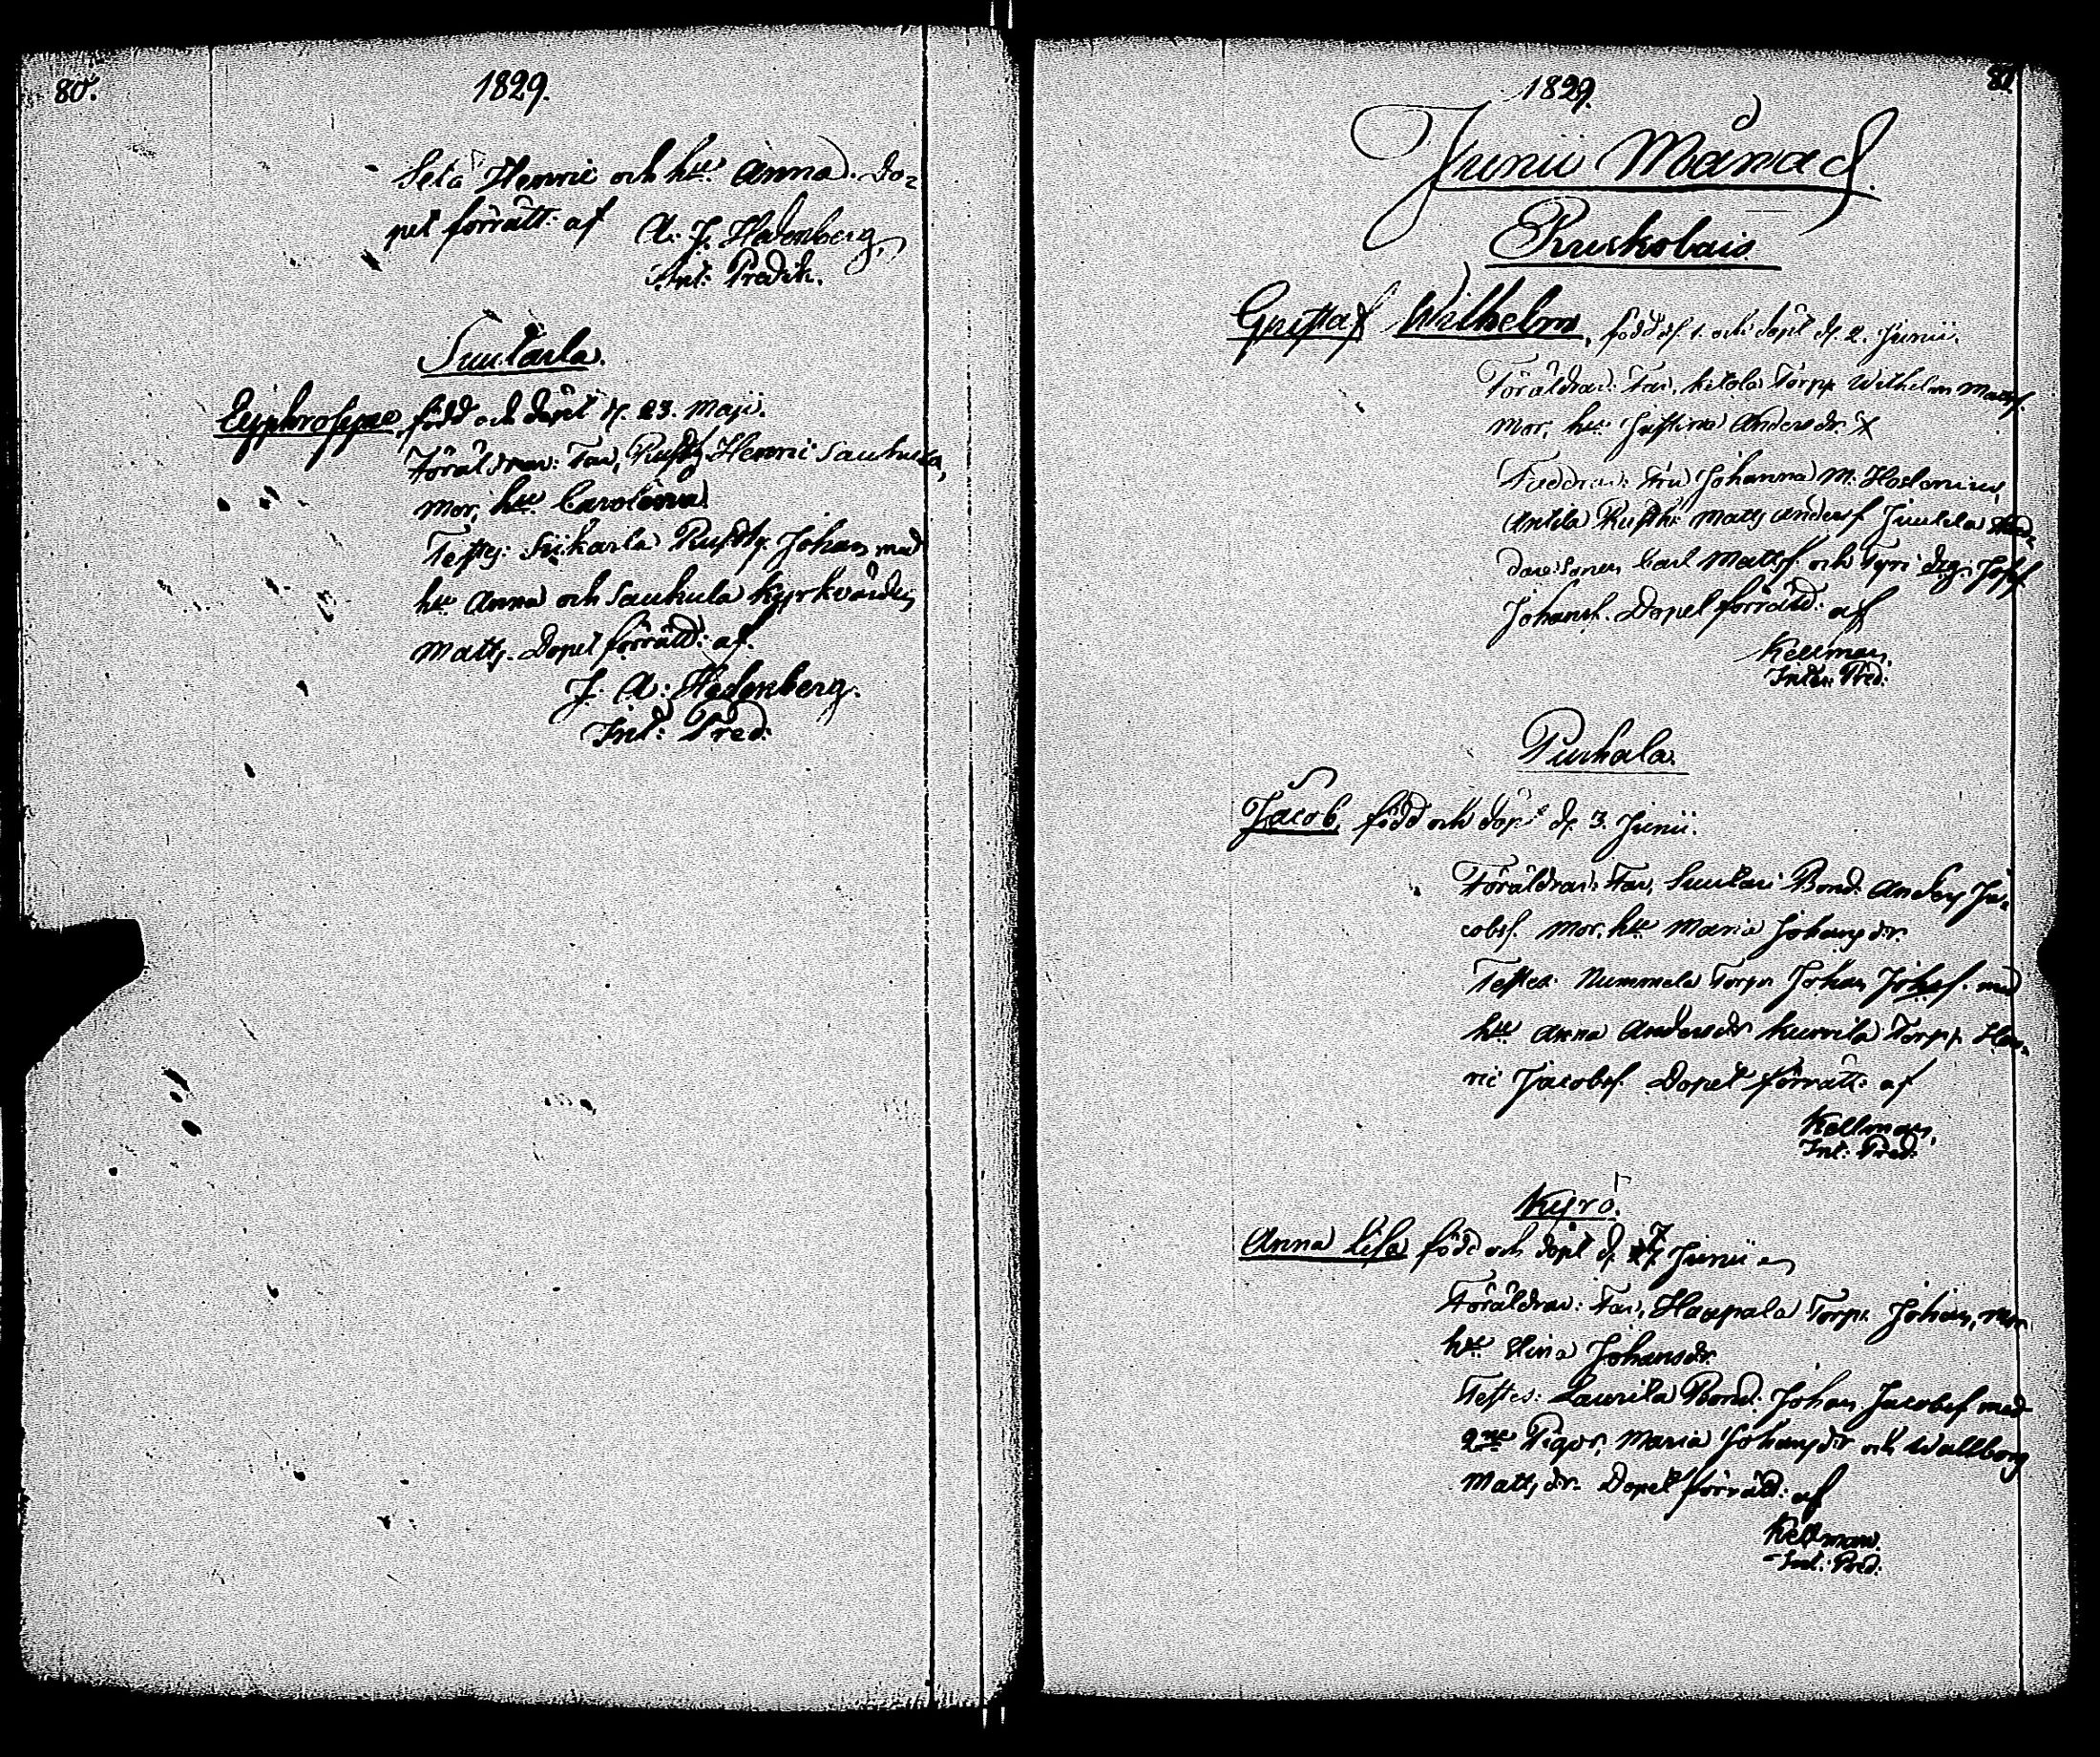 80.
1829.
Seta Henric och hu. Anna. Do-
pet förrätt: af A. J. Hedenberg,
Int: Predik.
Suutarla.
Euphrosyne, född och döpt d. 23. Maji.
Föräldrar: Far, Rusth. Henric Saukula,
Mor, hu. Carolina.
Testes: Seikarla Rusth. Johan med
hu Anna och Saukula Kyrkvärden
Matts. Dopet förrätt: af.
J. A: Hedenberg.
Int: Pred:
1829.
81.
Junii Månad.
Ruskolais
Gustaf Wilhelm, född d. 1. och döpt d. 2. Junii.
Föräldrar: Far, Torp. Wilhelm Matss.
Mor, hu. Justina Andersdr.
Faddrar: Fru Johanna M.
Anttila Rusth: Matts Anders. Juulila
Carl Mattss. och Tyri drg. Josef
Johanss. Dopet förrätt: af
Kellman,
Inter: Pred:
Puohala.
Jacob, född och döpt d. 3. Junii.
Föräldrar: Far, Suutari Bond. Anders Ja-
cobss. Mor, hu Maria Johansdr.
Testes: Nummela Torp. Johan Johss. med
hu Anna Andersdr Kurvila Torp. Hen-
ric Jacobss. Dopet förrätt: af
Kellman,
Int: Pred:
Kyrö.
Anna Lisa född och döpt d. 7 Junii
Föräldrar: Far, Haapala Torp. Johan, Mor
hu. Stina Johansdr.
Testes: Laurila Bond: Johan Jacobss med
2ne Pigor, Maria Johansdr och Wallborg
Mattsdr. Dopet förrätt: af
Kellman.
Int: Pred: